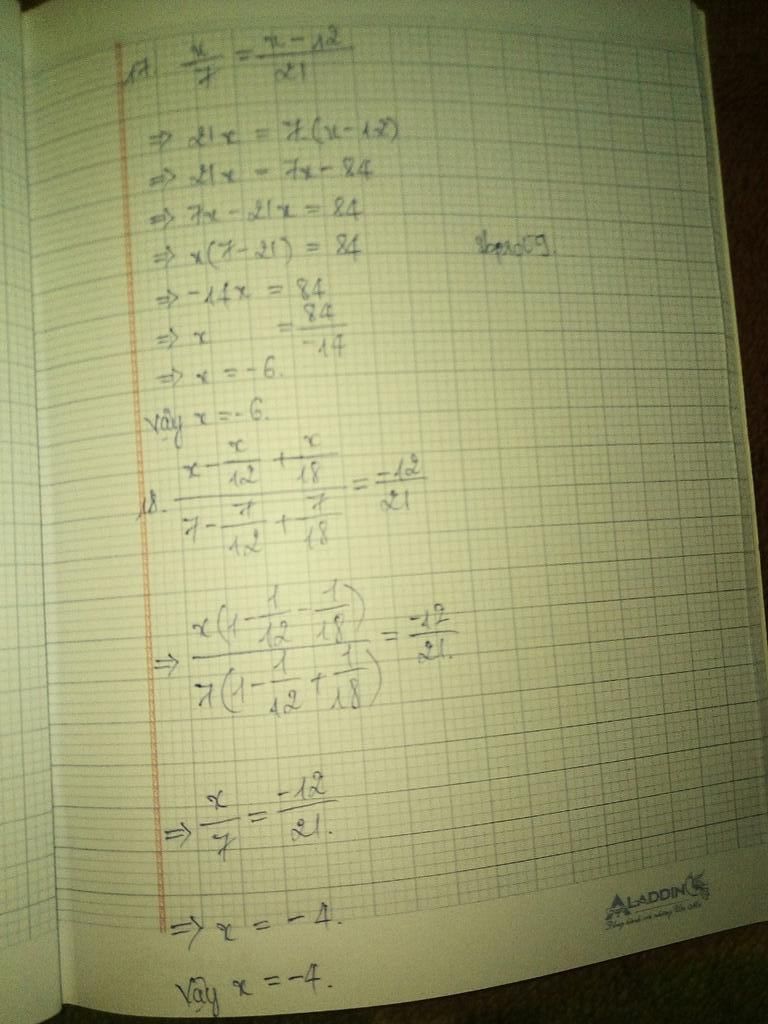 17. x/7 = x-12/21
=> 21x = 7.(x-12)
=> 21x = 7x-84
=> 7x-21x = 84
=> x(7-21) = 84
=> -14x = 84
=> x = 84/-14
=> x = -6.
Vậy x = -6.
18. (x - x/12 + x/18)/(7 - 7/12 + 7/18) = -12/21
=> x(1 - 1/12 - 1/18)/7(1 - 1/12 + 1/18) = -12/21.
=> x/7 = -12/21.
=> x = -4.
Vậy x = -4.
ALADDIN